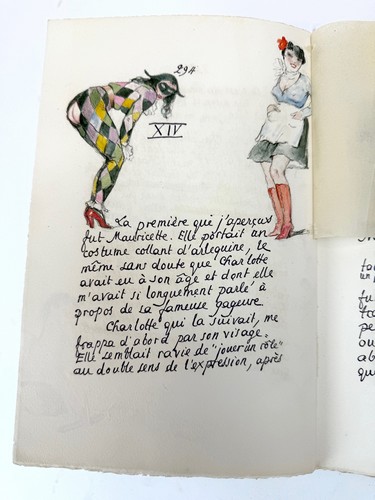 294
XIV
La première qui j'aperçus
fut Mauricette. Elle portait un
costume collant d'arlequine, le
même sans doute que Charlotte
avait eu à son âge et dont elle
m'avait si longuement parlé à
propos de sa fameuse gageure
Charlotte qui la suivait, me
frappa d'abord par son visage.
Elle semblait ravie de "jouer un rôle"
au double sens de l'expression, après